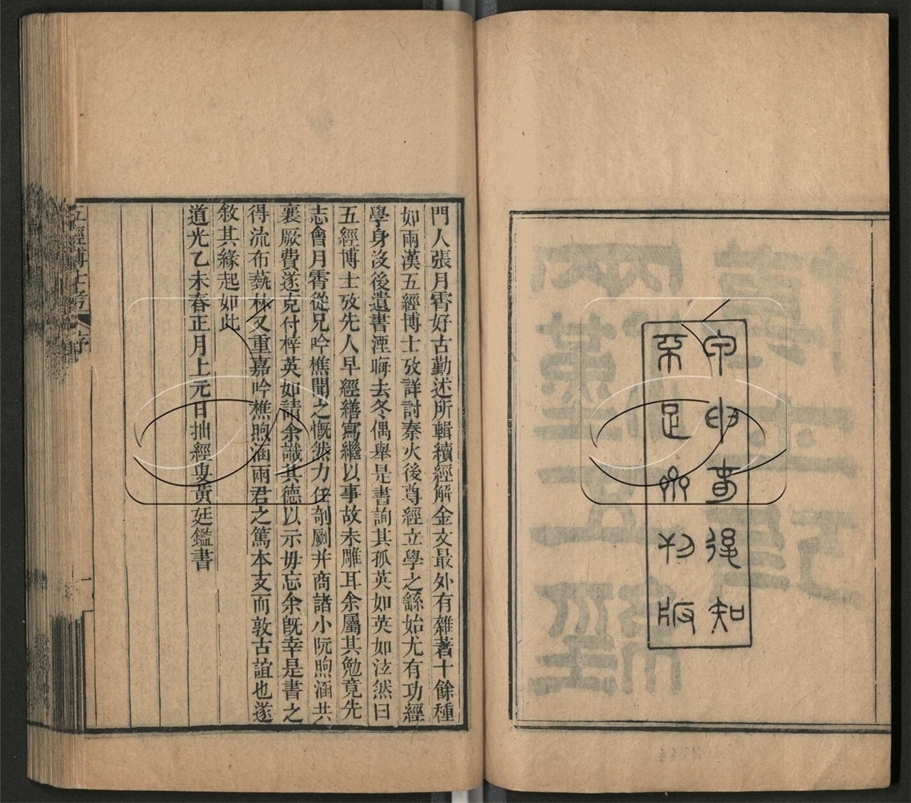 知不足齋後知
不足齋刊版
門人張月霄好古勤述所輯續經解金文最外有雜著十餘種
如兩漢五經博士攷詳討秦火後尊經立學之繇始尤有功經
學身沒後遺書湮晦去冬偶舉是書詢其孤英如英如泫然曰
五經博士攷先人早經繕寫繼以事故未雕耳余屬其勉竟先
志會月霄從兄吟樵聞之慨然力任剞劂并商諸小阮煦涵共
襄厥費遂克付梓英如請余識其德以示毋忘余旣幸是書之
得流布藝林又重嘉吟樵煦涵兩君之篤本支而敦古誼也遂
敘其緣起如此
道光乙未春正月上元日拙經叟黃廷鑑書
五經博士考